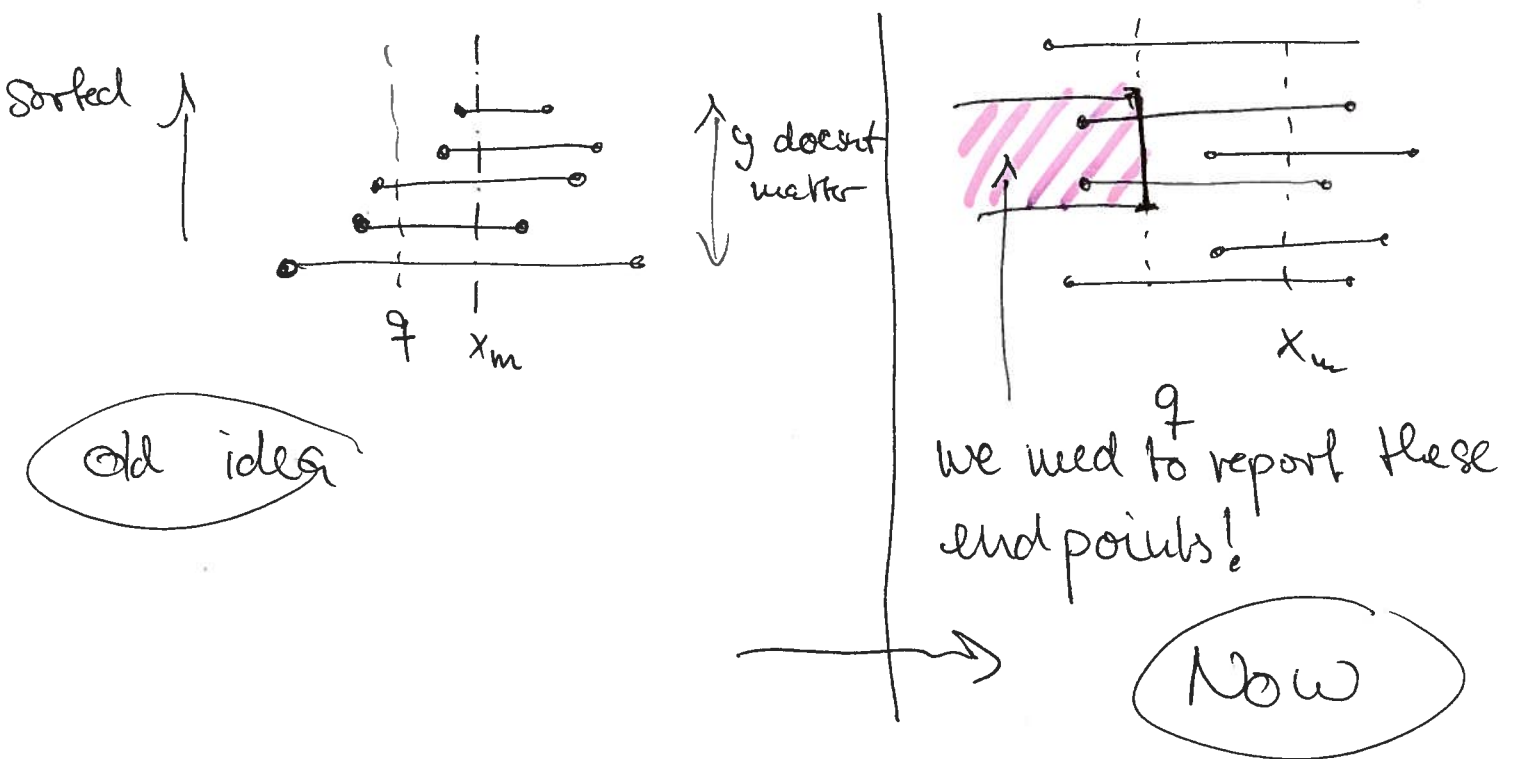 Sorted
q
x_m
y doesn't
matter
old idea
x_m
q
we need to report these
endpoints!
Now